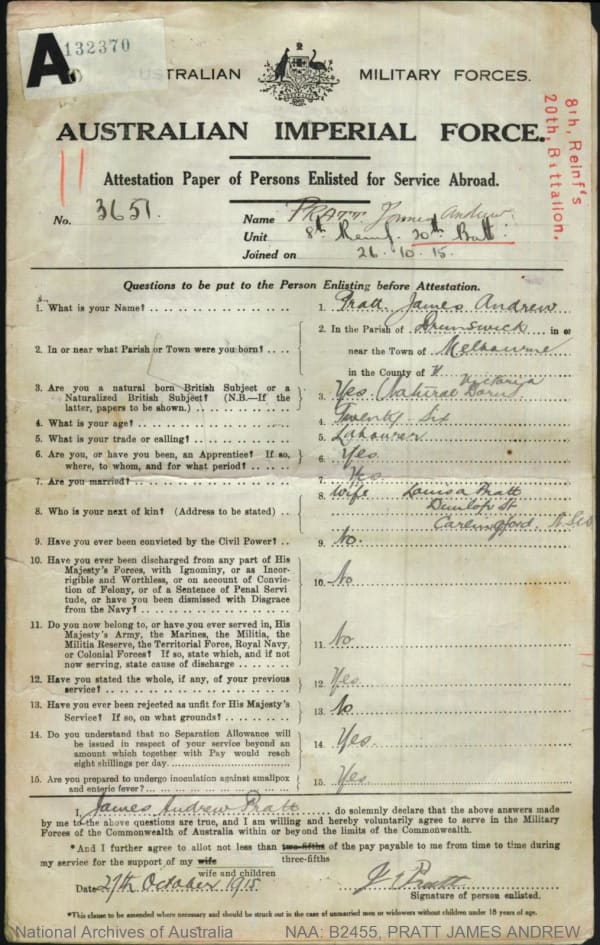 A 132370
AUSTRALIAN MILITARY FORCES.
AUSTRALIAN IMPERIAL FORCE.
8th, Reinf's
20th, Battalion.
11
Attestation Paper of Persons Enlisted for Service Abroad.
No. 3651. Name PRATT James Andrew.
Unit 8th Reinf. 20th Batt:
Joined on 26.10.15.
Questions to be put to the Person Enlisting before Attestation.
1. What is your Name? 1. Pratt James Andrew
2. In or near what Parish or Town were you born? 2. In the Parish of Brunswick in or
near the Town of Melbourne
in the County of Victoria
3. Are you a natural born British Subject or a 3. Yes (Natural Born)
Naturalized British Subject? (N.B.—If the
latter, papers to be shown.)
4. What is your age? 4. Twenty Six
5. What is your trade or calling? 5. Labourer
6. Are you, or have you been, an Apprentice? If so, 6. Yes
where, to whom, and for what period?
7. Are you married? 7. Yes
8. Who is your next of kin? (Address to be stated) 8. Wife Louisa Pratt
Dunlop St
Carlingford
9. Have you ever been convicted by the Civil Power? 9. No.
10. Have you ever been discharged from any part of His 10. No
Majesty's Forces, with Ignominy, or as Incor-
rigible and Worthless, or on account of Convic-
tion of Felony, or of a Sentence of Penal Servi
tude, or have you been Dismissed with Disgrace
from the Navy?
11. Do you now belong to, or have you ever served in, His 11. No
Majesty's Army, the Marines, the Militia, the
Militia Reserve, the Territorial Force, Royal Navy,
or Colonial Forces? If so, state which, and if not
now serving, state cause of discharge
12. Have you stated the whole, if any, of your previous 12. Yes
service?
13. Have you ever been rejected as unfit for His Majesty's 13. No
Service? If so, on what grounds?
14. Do you understand that no Separation Allowance will 14. Yes
be issued in respect of your service beyond an
amount which together with Pay would reach
eight shillings per day.
15. Are you prepared to undergo inoculation against smallpox 15. Yes
and enteric fever?
I, James Andrew Pratt do solemnly declare that the above answers made
by me to the above questions are true, and I am willing and hereby voluntarily agree to serve in the Military
Forces of the Commonwealth of Australia within or beyond the limits of the Commonwealth.
*And I further agree to allot not less than two-fifths of the pay payable to me from time to time during
three-fifths
my service for the support of my wife
wife and children
Date 27th October 1915 J A Pratt
Signature of person enlisted.
*This clause to be amended where necessary and should be struck out in the case of unmarried men or widowers without children under 18 years of age.
National Archives of Australia NAA: B2455, PRATT JAMES ANDREW